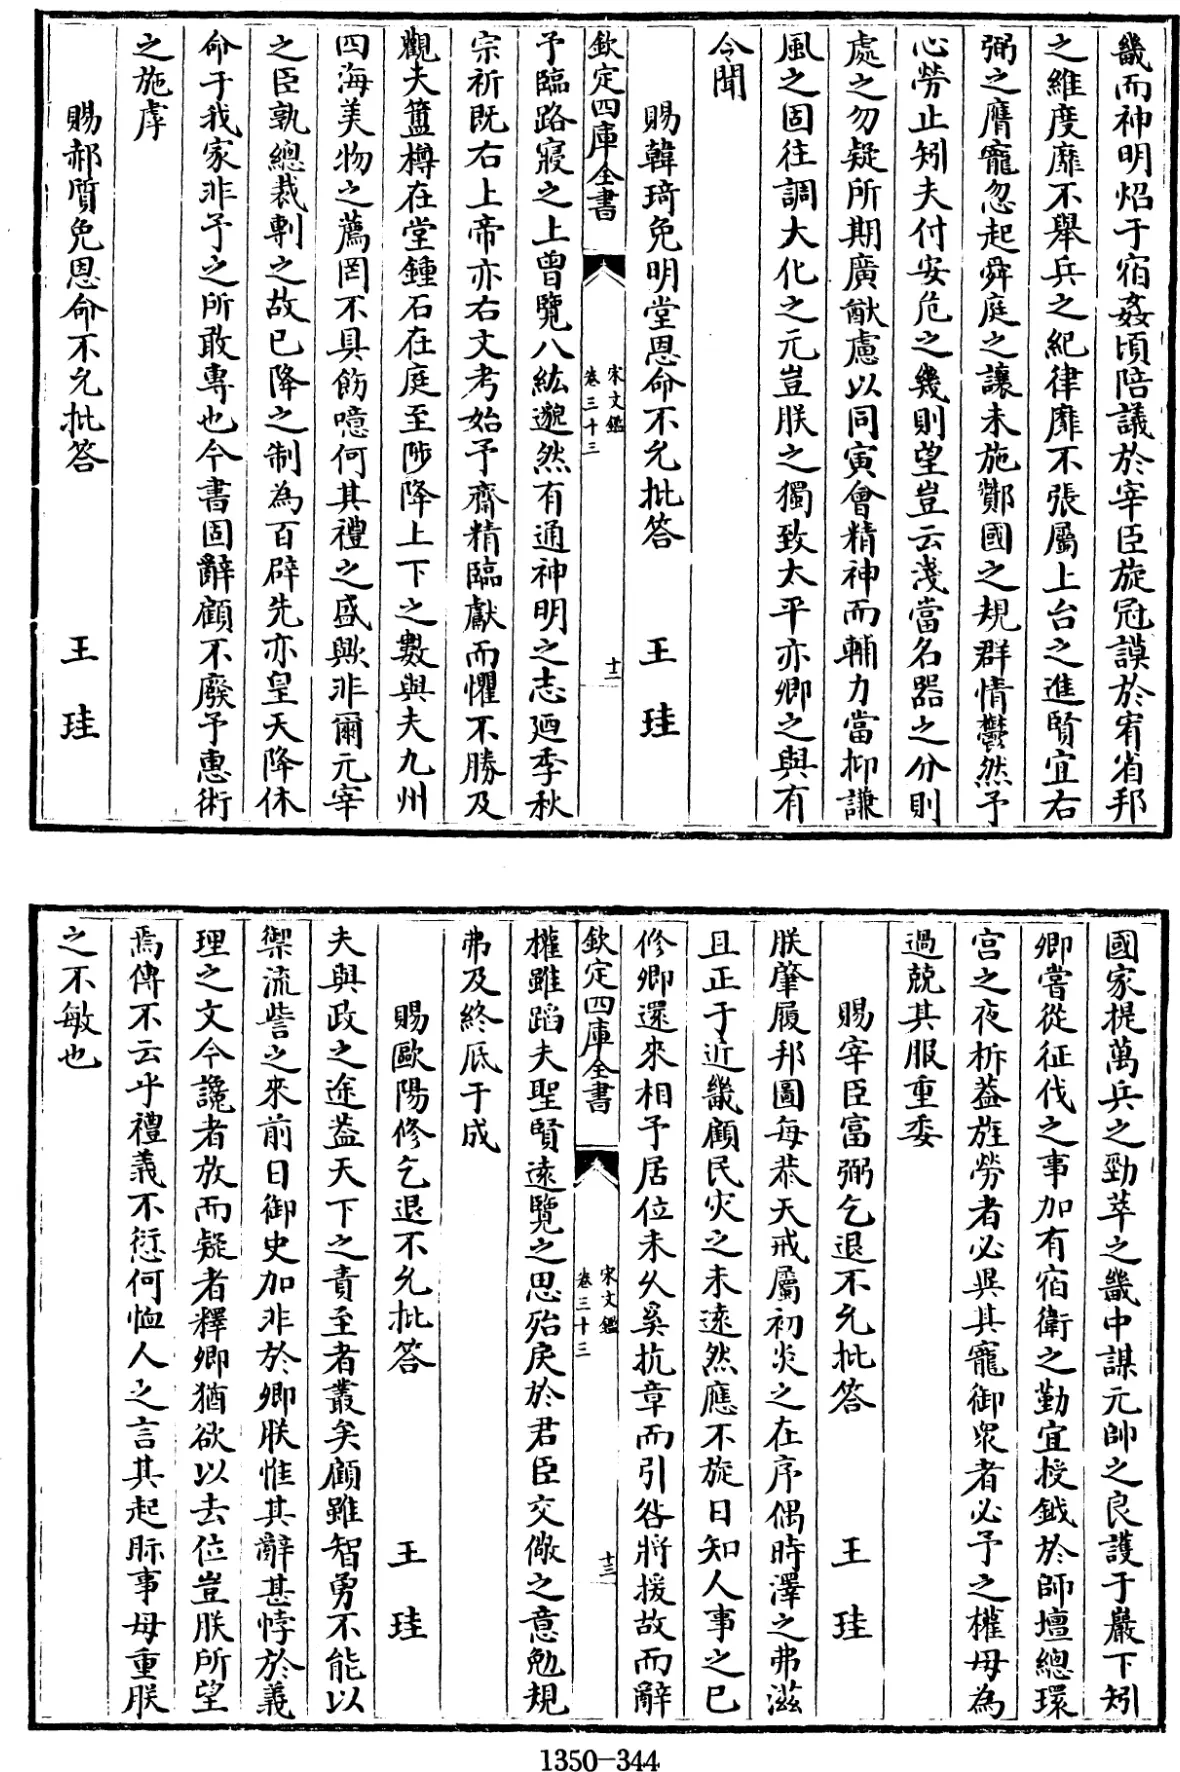 畿而神明焰于宿姦頃陪議於宰臣旋冠謨於宥省邦
之維度靡不舉兵之紀律靡不張屬上台之進賢宜右
弼之膺寵忽起舜庭之讓未施鄭國之規群情鬱然予
心勞止矧夫付安危之幾則望豈云淺當名器之分則
處之勿疑所期廣猷慮以同寅會精神而輔力當抑謙
風之固往調大化之元豈朕之獨致太平亦卿之與有
令聞
賜韓琦免明堂恩命不允批答 王珪
欽定四庫全書 宋文鑑 卷三十三 十二
予臨路寢之上曾覽八紘邈然有通神明之志廼季秋
宗祈既右上帝亦右文考始予齋精臨獻而懼不勝及
觀夫簠樽在堂鍾石在庭至陟降上下之數與夫九州
四海美物之薦罔不具飭噫何其禮之盛歟非爾元宰
之臣孰總裁剸之故已降之制為百辟先亦皇天降休
命于我家非予之所敢專也今書固辭顧不廢予惠術
之施虖
賜郝質免恩命不允批答 王珪
國家提萬兵之勁萃之畿中謀元帥之良護于巖下矧
卿嘗從征伐之事加有宿衛之勤宜授鉞於師壇總環
宮之夜柝葢旌勞者必異其寵御衆者必予之權毋為
過兢其服重委
賜宰臣富弼乞退不允批答 王珪
朕肇履邦圖每恭天戒屬初炎之在序偶時澤之弗滋
且正于近畿顧民灾之未遠然應不旋日知人事之已
修卿還來相予居位未久奚抗章而引咎將援故而辭
欽定四庫全書 宋文鑑 卷三十三 十三
權雖蹈夫聖賢遠覽之思殆戾於君臣交儆之意勉規
弗及終底于成
賜歐陽修乞退不允批答 王珪
夫與政之途葢天下之責至者叢矣顧雖智勇不能以
禦流訾之來前日御史加非於卿朕惟其辭甚悖於義
理之文今讒者放而疑者釋卿猶欲以去位豈朕所望
焉傳不云乎禮義不愆何恤人之言其起眎事毋重朕
之不敏也
1350-344